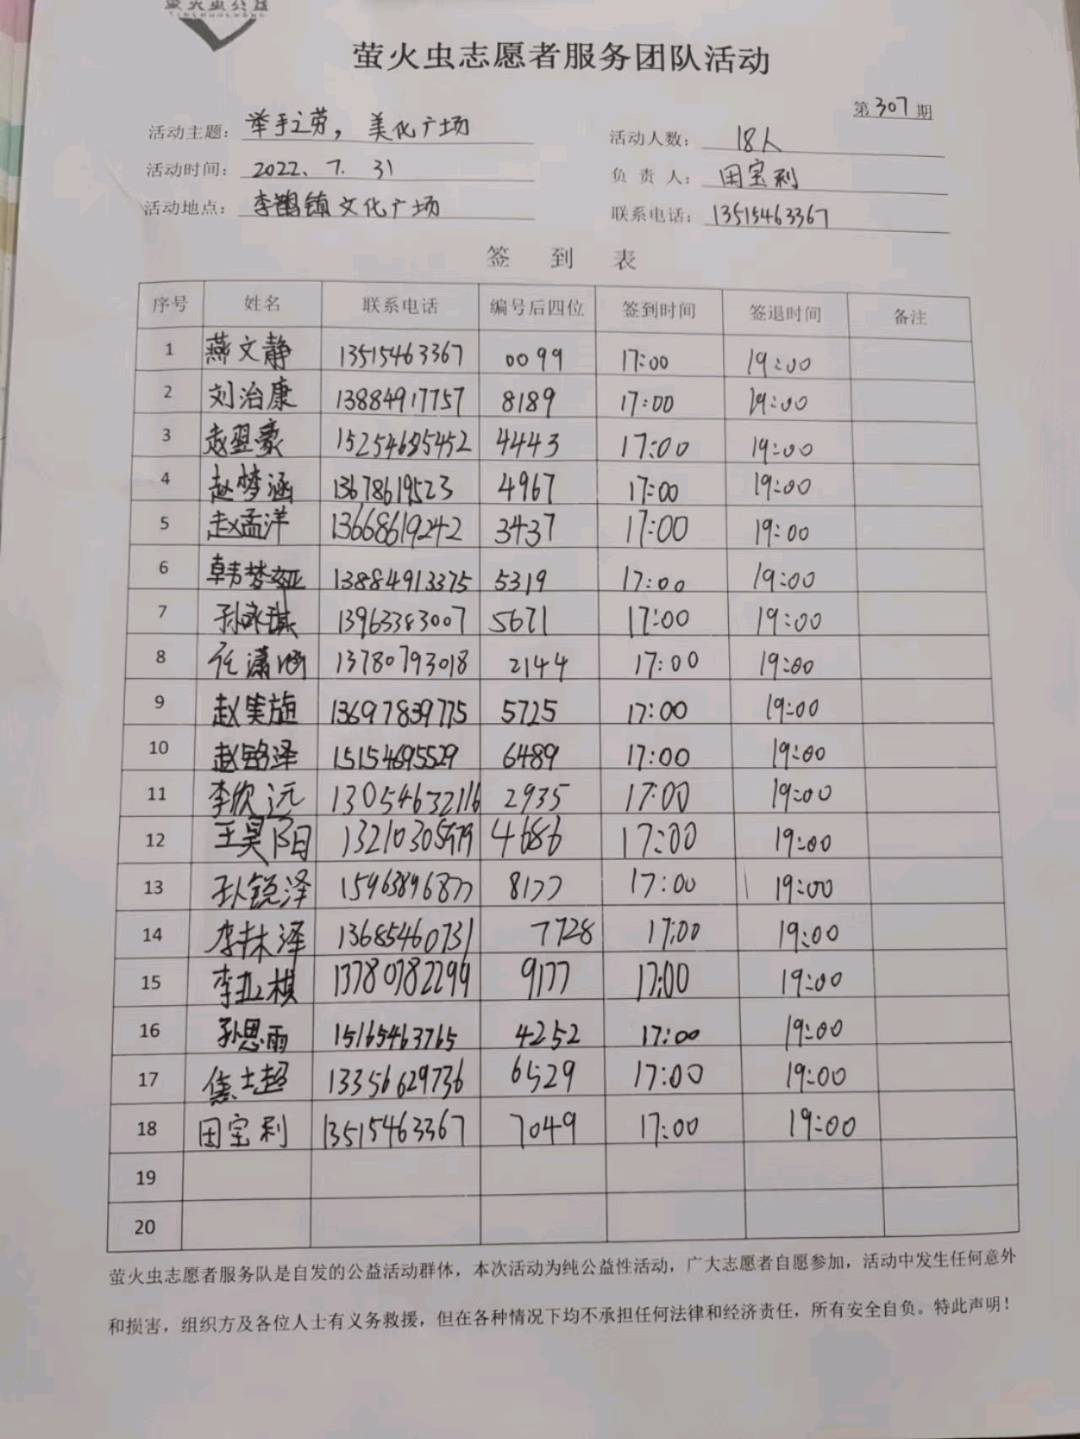 萤火虫公益
萤火虫志愿者服务团队活动
第307期
活动主题：举手之劳，美化广场 活动人数：18人
活动时间：2022.7.31 负责人：田宝利
活动地点：李鹊镇文化广场 联系电话：13515463367
签到表
序号 姓名 联系电话 编号后四位 签到时间 签退时间 备注
1 燕文静 13515463367 0099 17:00 19:00
2 刘治康 13884917757 8189 17:00 19:00
3 赵翌豪 15254685452 4443 17:00 19:00
4 赵梦涵 13678619523 4967 17:00 19:00
5 赵孟洋 13668619242 3437 17:00 19:00
6 韩梦 13884913375 5319 17:00 19:00
7 孙咏琪 13963383007 5671 17:00 19:00
8 任潇 13780793018 2144 17:00 19:00
9 赵笑旋 13697839775 5725 17:00 19:00
10 赵铭泽 15154695529 6489 17:00 19:00
11 李欣远 13054632116 2935 17:00 19:00
12 王昊阳 13210305979 4686 17:00 19:00
13 孙锐泽 15963896877 8177 17:00 19:00
14 李林泽 13685460731 7728 17:00 19:00
15 李亚棋 13780782299 9177 17:00 19:00
16 孙思雨 15165463765 4252 17:00 19:00
17 焦士超 13356629736 6529 17:00 19:00
18 田宝利 13515463367 7049 17:00 19:00
19
20
萤火虫志愿者服务队是自发的公益活动群体，本次活动为纯公益性活动，广大志愿者自愿参加，活动中发生任何意外
和损害，组织方及各位人士有义务救援，但在各种情况下均不承担任何法律和经济责任，所有安全自负。特此声明！